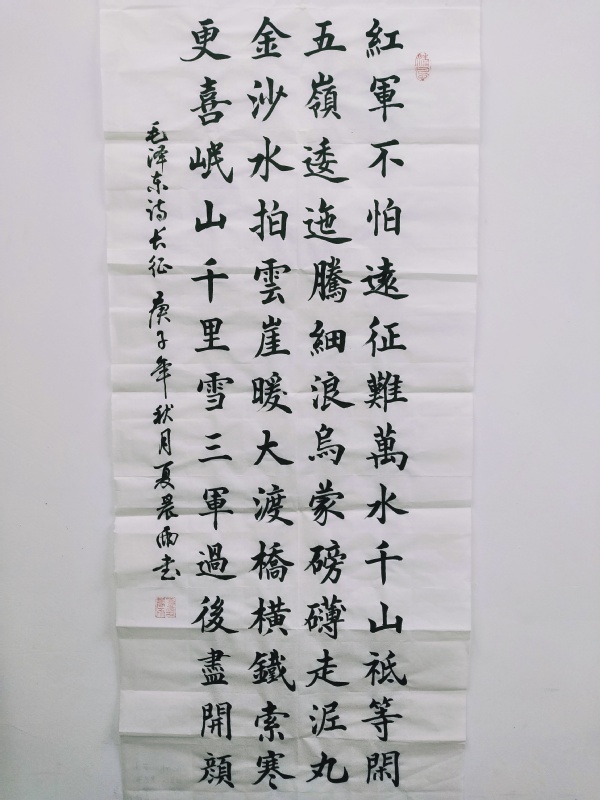 紅軍不怕遠征難萬水千山祗等閑
五嶺逶迤騰細浪烏蒙磅礴走泥丸
金沙水拍雲崖暖大渡橋橫鐵索寒
更喜岷山千里雪三軍過後盡開顔
毛泽东诗长征 庚子年秋月夏晨雨书